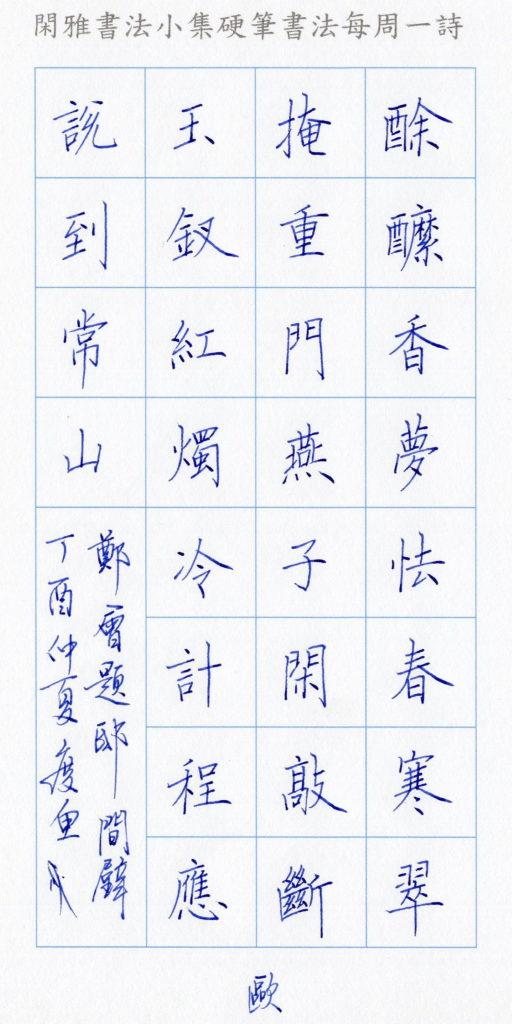 閑雅書法小集硬筆書法每周一詩
酴醾香夢怯春寒翠
掩重門燕子閑敲斷
玉釵紅燭冷計程應
說到常山
鄭會題邸間壁
丁酉仲夏
歐